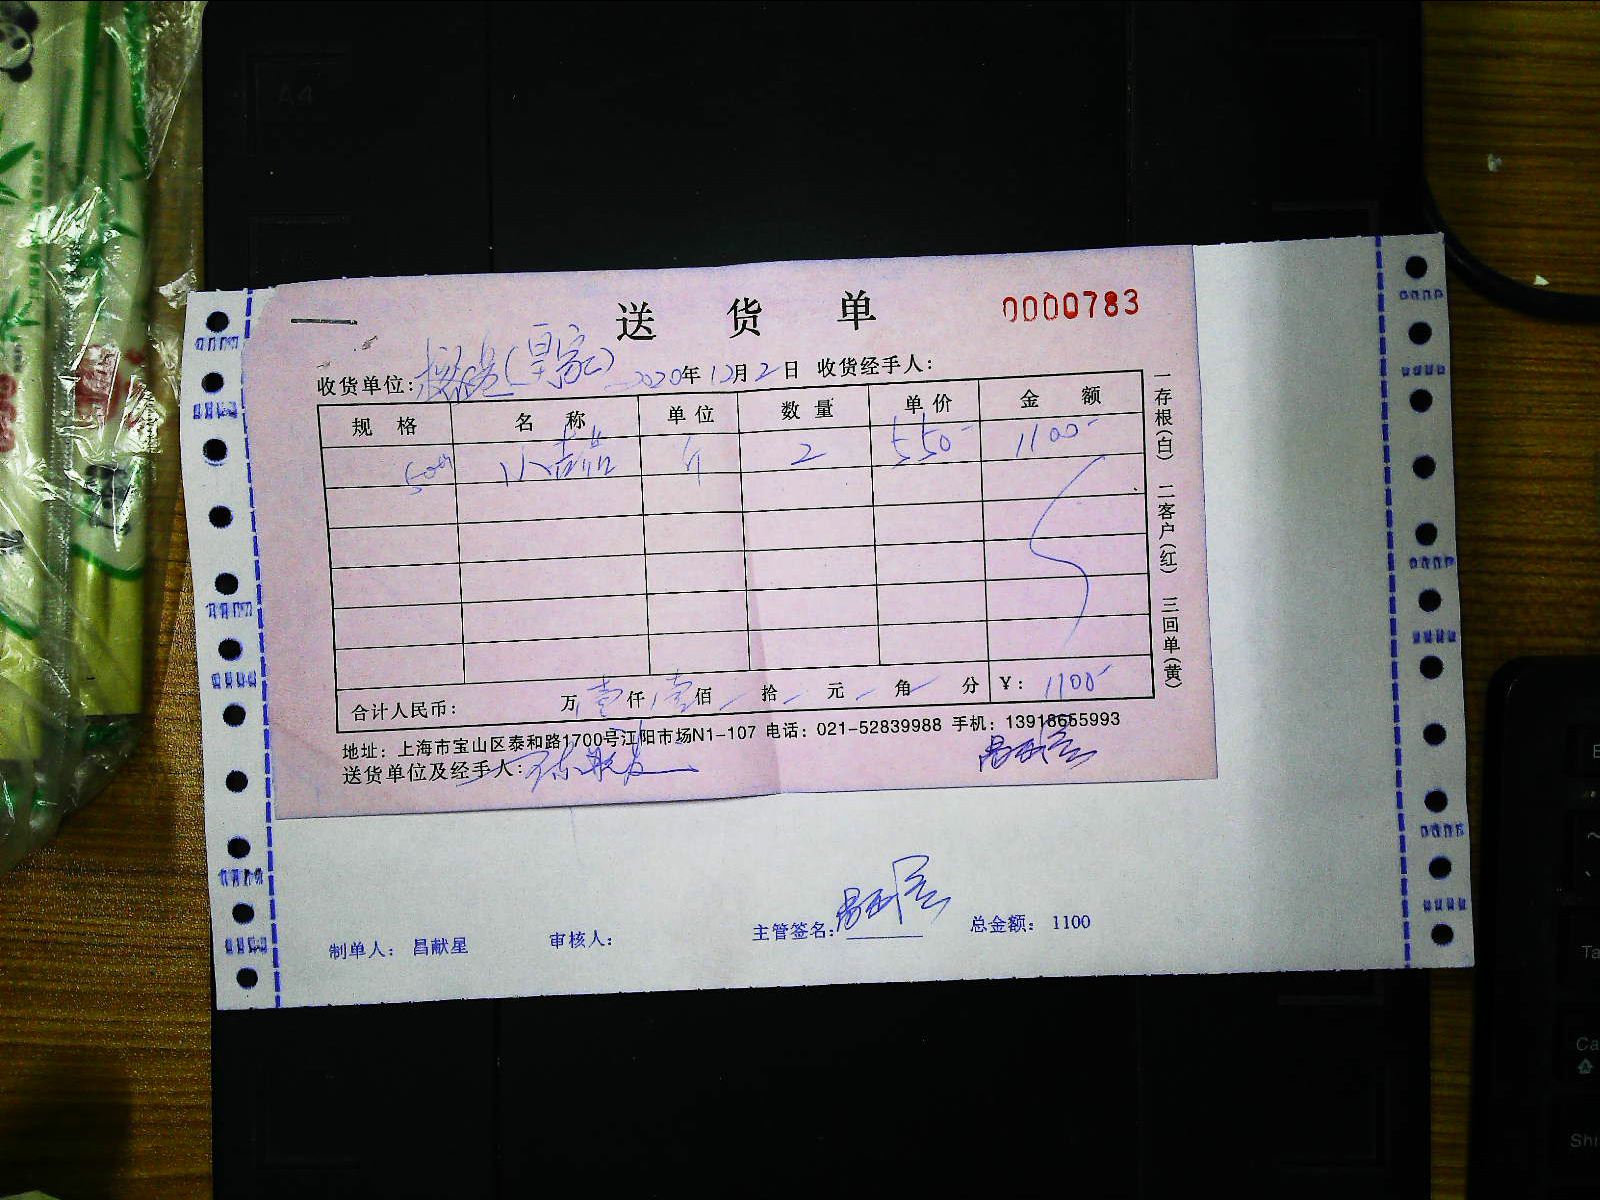 A4
送 货 单 0000783
收货单位: (皇家) 2020年12月2日 收货经手人:
规 格 名 称 单 位 数 量 单 价 金 额
小青 个 2 550- 1100-
合计人民币: 万壹仟壹佰 拾 元 角 分 ¥: 1100-
地址: 上海市宝山区泰和路1700号江阳市场N1-107 电话: 021-52839988 手机: 13918655993
送货单位及经手人:
一存根(白) 二客户(红) 三回单(黄)
制单人: 昌献星 审核人: 主管签名: 总金额: 1100